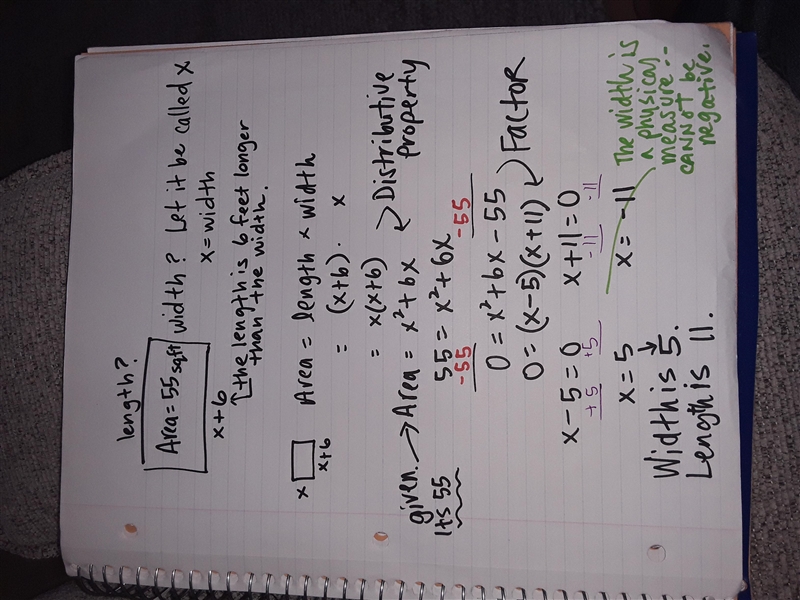 length?
Area = 55 sqft width? Let it be called x
x = width
x+6
the length is 6 feet longer
than the width.
x
x+6
Area = length x width
= (x+6) · x
= x(x+6)
Distributive
Property
given. → Area = x² + 6x
Its 55
55 = x² + 6x
-55 -55
0 = x² + 6x - 55
0 = (x-5)(x+11) Factor
x - 5 = 0 x + 11 = 0
+5 +5 -11 -11
x = 5 x = -11
The width is
a physical
measure...
CANNOT be
negative.
Width is 5.
Length is 11.